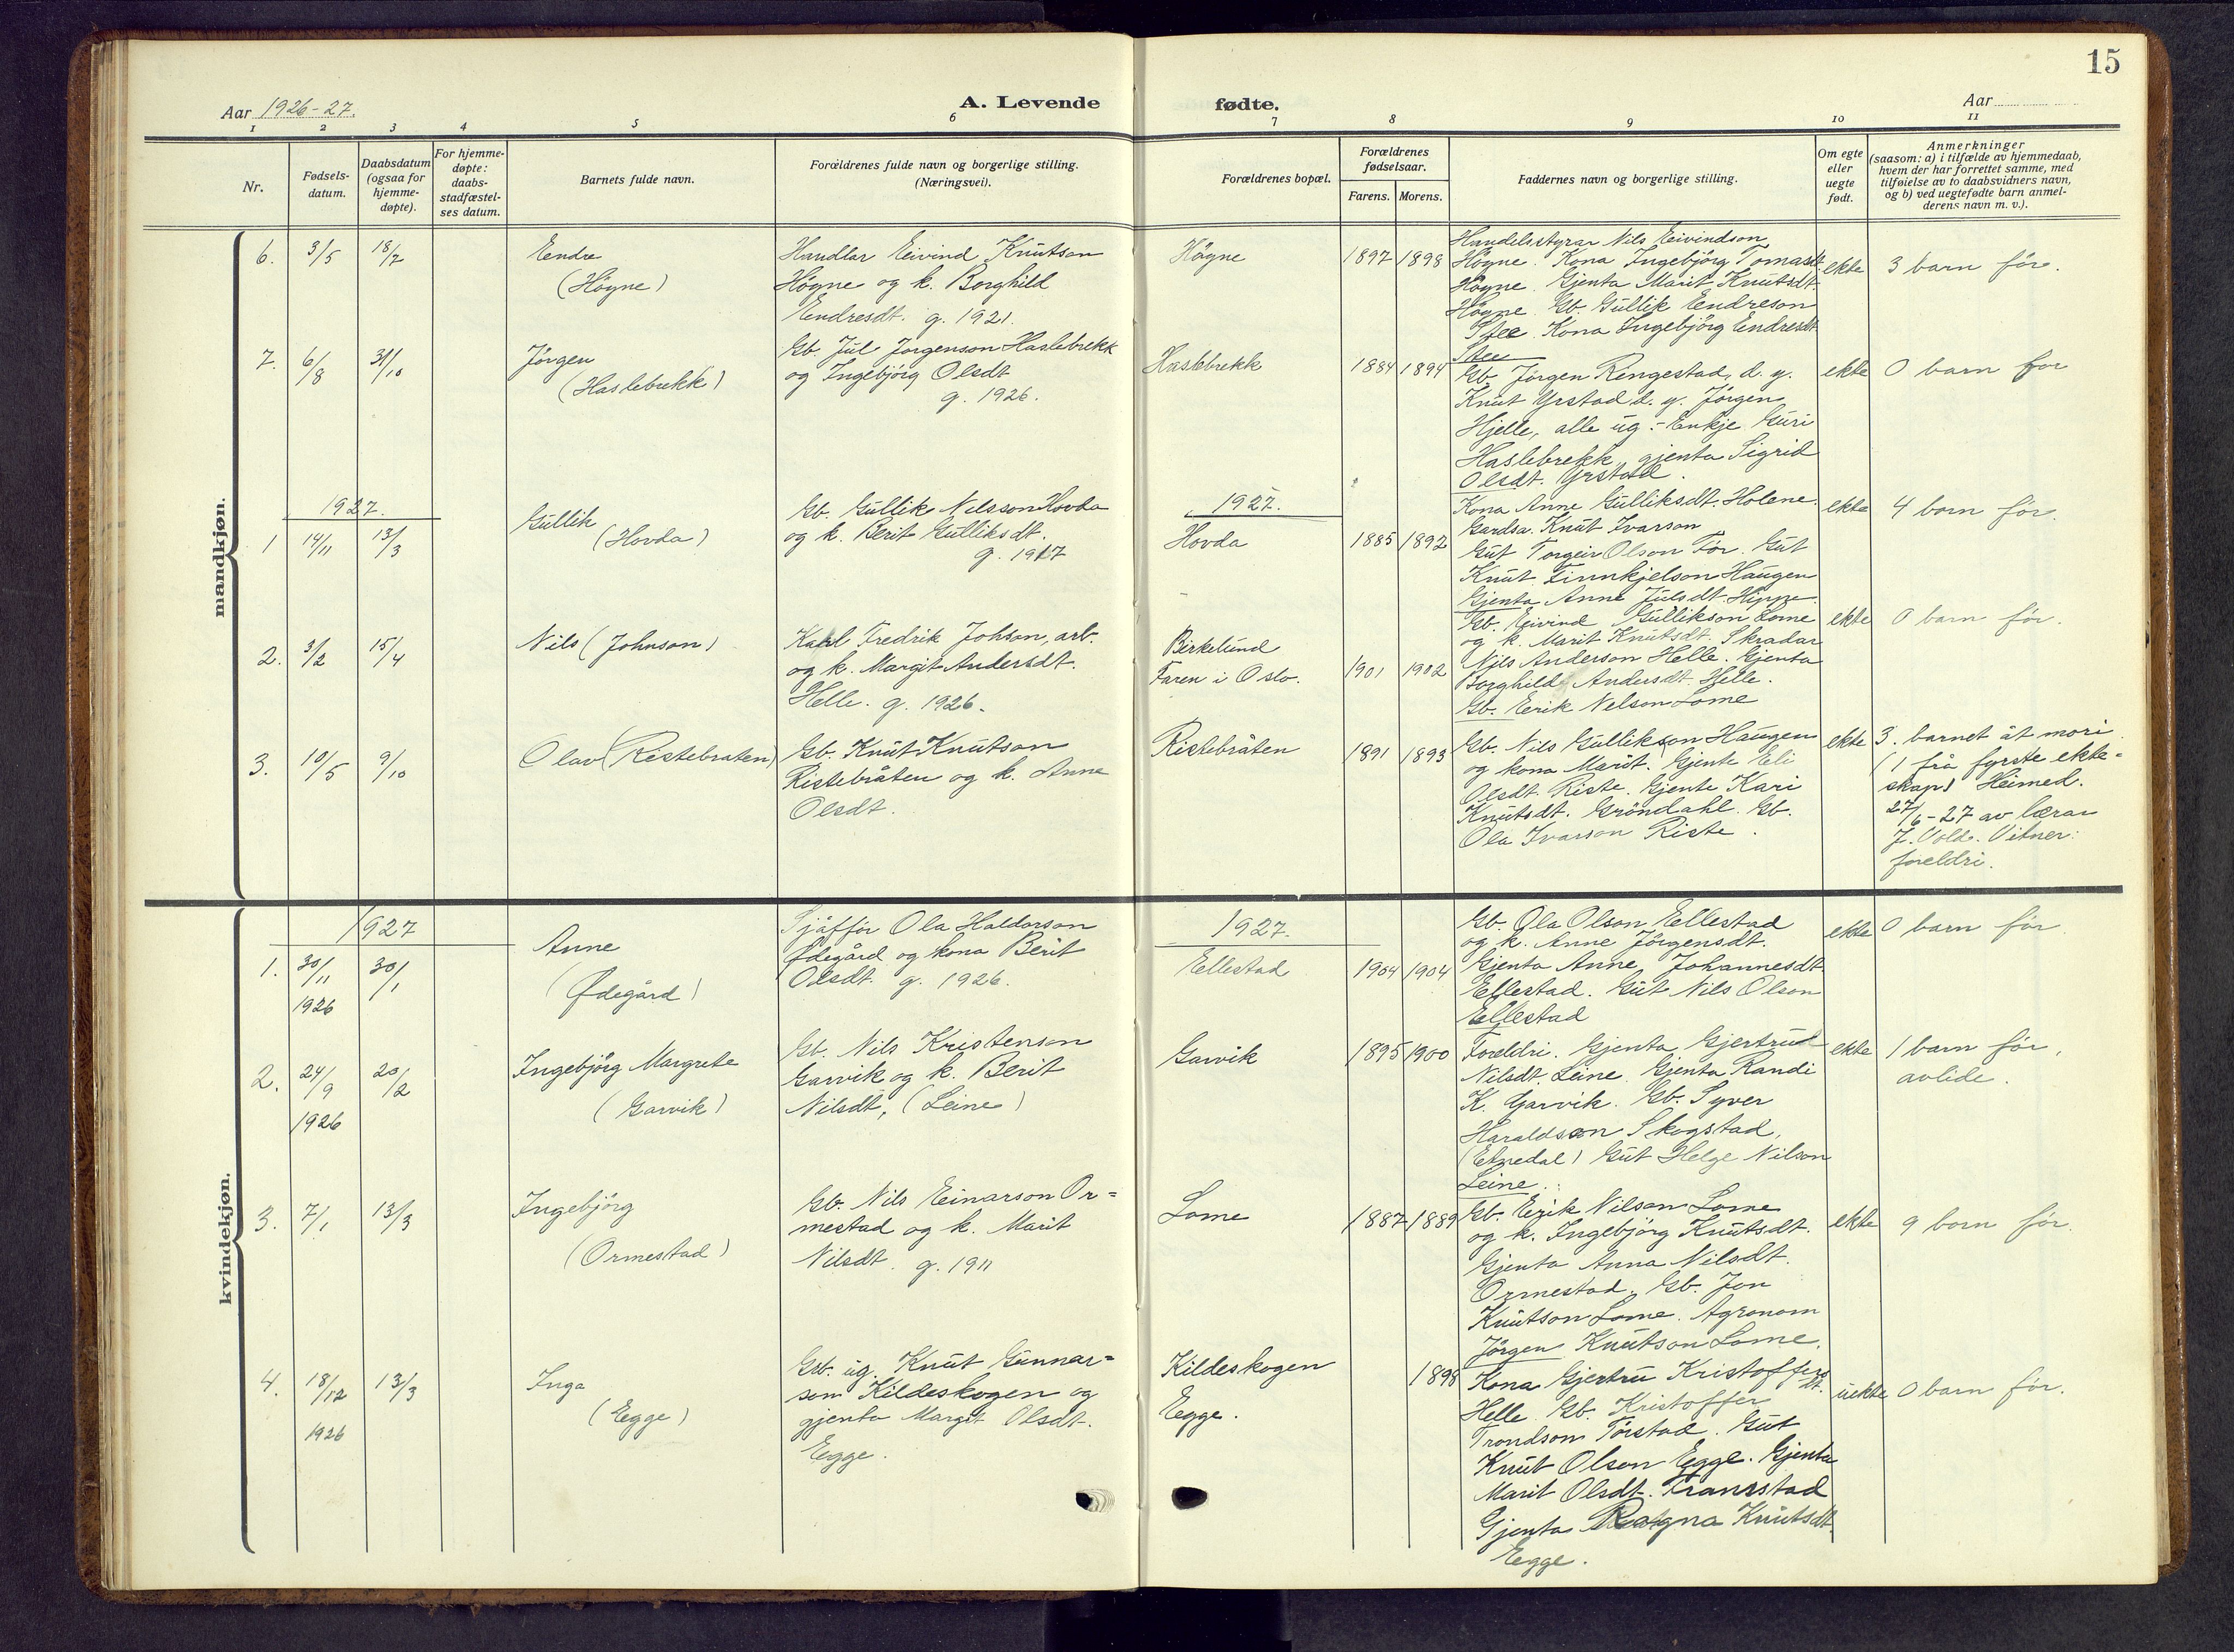 15
Aar 1926-27.
A. Levende fødte.
Aar
1 2 3 4 5 6 7 8 9 10 11
Nr.
Fødsels-
datum.
Daabsdatum
(ogsaa for
hjemme-
døpte).
For hjemme-
døpte:
daabs-
stadfæstel-
ses datum.
Barnets fulde navn.
Forældrenes fulde navn og borgerlige stilling.
(Næringsvei).
Forældrenes bopæl.
Forældrenes
fødselsaar.
Farens. Morens.
Faddernes navn og borgerlige stilling.
Om egte
eller
uegte
født.
Anmerkninger
(saasom: a) i tilfælde av hjemmedaab,
hvem der har forrettet samme, med
tilføielse av to daabsvidners navn,
og b) ved uegtefødte barn anmel-
derens navn m. v.).
mandkjøn.
6. 3/5 18/7
Endre
(Høgne)
Handlar Eivind Knutson
Høgne og k. Borghild
Endresdt. g. 1921.
Høgne
1897 1898
Handelsstyrar Nils Eivindson
Høgne. Kona Ingebjørg Tomasdt.
Høgne. Gjenta Marit Knutsdt.
Høgne. Gb. Gullik Endreson
Stee. Kona Ingebjørg Endresdt.
Stee
ekte
3 barn før.
7. 6/8 31/10
Jørgen
(Haslebrekk)
Gb. Jul Jørgenson Haslebrekk
og Ingebjørg Olsdt
g. 1926.
Haslebrekk
1884 1894
Gb. Jørgen Rengestad, d. y.
Knut Yrstad d. y. Jørgen
Hjelle, alle ug. - Enkje Guri
Haslebrekk, gjenta Sigrid
Olsdt. Yrstad.
ekte
0 barn før
1927.
1 14/11 13/3
Gullik
(Hovda)
Gb. Gullik Nilsson Hovda
og k. Berit Gulliksdt.
g. 1917
1927.
Hovda
1885 1892
Kona Anne Gulliksdt. Holene.
Gardsa. Knut Ivarson
Gut Torgeir Olson Før. Gut
Knut Finnkjelson Haugen
Gjenta Anne Julsdt. Hippe.
ekte
4 born før.
2. 3/2 15/4
Nils (Johnson)
Karl Fredrik Johson, arb.
og k. Margit Andersdt.
Helle. g. 1926.
Birkelund
Faren i Oslo.
1901 1902
Gb. Eivind Gullikson Lome
og k. Marit Knutsdt. Skradar
Nils Anderson Helle. Gjenta
Borghild Andersdt. Helle.
Gb. Eerik Nelson Lome
ekte
0 barn før.
3. 10/5 9/10
Olav (Ristebråten)
Gb. Knut Knutson
Ristebråten og k. Anne
Olsdt.
Ristebråten
1891 1893
Gb. Nils Gullikson Haugen
og kona Marit. Gjente Eli
Olsdt. Riste. Gjente Kari
Knutsdt. Grøndahl. Gb.
Ola Ivarson Riste.
ekte
3. barnet åt mori
(1 frå fyrste ekte-
skap) Heimed.
27/6-27 av lærar
J. Vold. Vitner:
foreldri.
kvindekjøn.
1927
1. 30/11 1926 30/1
Anne
(Ødegård)
Sjåffør Ola Haldorson
Ødegård og kona Berit
Olsdt. g. 1926.
1927.
Eellestad
1904 1904
Gb. Ola Olson Eellestad
og k. Anne Jørgensdt.
Gjenta Anne Johannesdt.
Eellestad. Gut Nils Olson
Eellestad
ekte
0 barn før.
2. 24/9 1926 20/2
Ingebjørg Margrete
(Garvik)
Gb. Nils Kristenson
Garvik og k. Berit
Nilsdt, (Leine)
Garvik
1895 1900
Foreldri. Gjenta Gjertrud
Nilsdt. Leine. Gjenta Randi
K. Garvik. Gb. Syver
Haraldson Skogstad,
(Etnedal) Gut Helge Nilson
Leine.
ekte
1 barn før,
avlide.
3. 7/1 13/3
Ingebjørg
(Ormestad)
Gb. Nils Eeinarson Or=
mestad og k. Marit
Nilsdt. g. 1911
Lome
1887 1889
Gb. Eerik Nilson Lome
og k. Ingebjørg Knutsdt.
Gjenta Anna Nilsdt.
Ormestad. Gb. Jon
Knutson Lome. Agronom
Jørgen Knutson Lome.
ekte
9 born før.
4. 18/12 1926 13/3
Inga
(Eegge)
Gb. ug. Knut Gunnar=
son Kildeskogen og
gjenta Margit Olsdt.
Eegge.
Kildeskogen
Eegge.
1898
Kona Gjertru Kristoffersdt.
Helle. Gb. Kristoffer
Trondson Tørstad. Gut
Knut Olson Egge. Gjenta
Marit Olsdt. Transtad
Gjenta Ragna Knutsdt.
Eegge.
uekte
0 barn før.